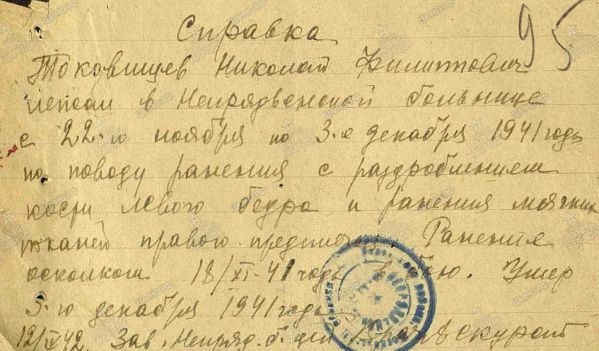 95
Справка
Токовищев Николай Филиппович
лежал в Непрядвенской больнице
с 22-го ноября по 3-е декабря 1941 года
по поводу ранения с раздроблением
кости левого бедра и ранения мягких
тканей правого предплечья. Ранения
осколком 18/XI-41 года в бою. Умер
3-го декабря 1941 года
12/IV 42. Зав. Непряд. б.